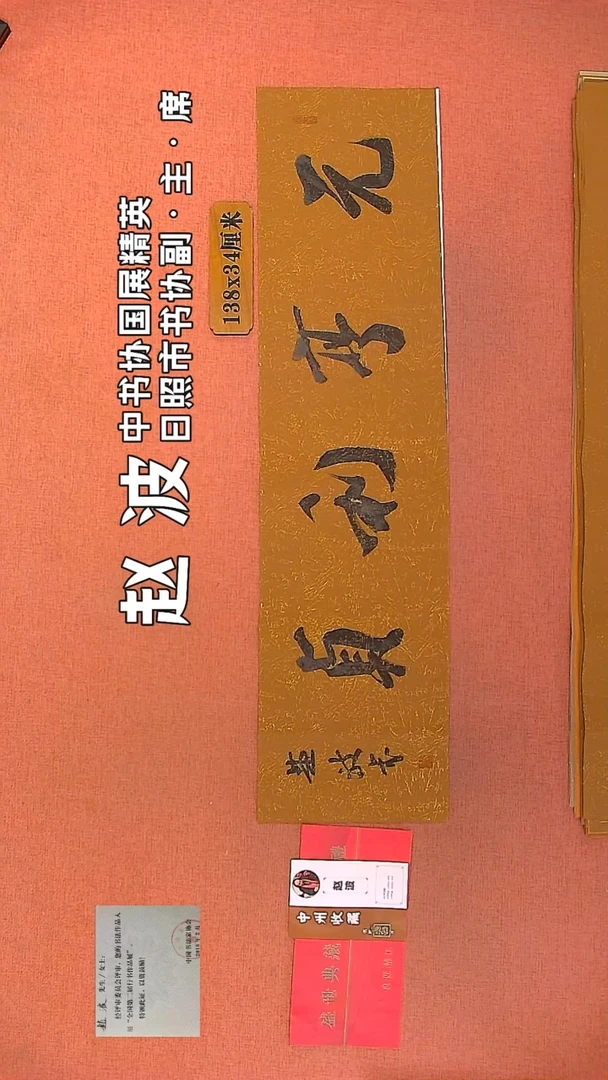 赵波
中书协国展精英
日照市书协副·主·席
138x34厘米
元亨利貞
赵波书
赵波 先生/女士:
经评审委员会评审,您的书法作品入
展“全国第二届行书作品展”。
特颁此证,以资鼓励!
中国书法家协会
赵波
中州收藏
盛世典藏
禮